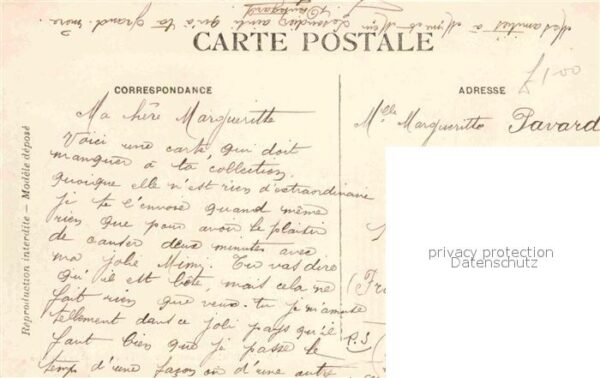 Mes amitiés à M. et Mme
ainsi qu'à ta grand-mère
CARTE POSTALE
CORRESPONDANCE
ADRESSE
£1-00
Ma chère Margueritte
Mlle Margueritte Pavard
Voici une carte, qui doit
manquer à ta collection.
Quoique elle n'est rien d'extraordinaire
je te l'envoie quand même
rien que pour avoir le plaisir
de causer deux minutes avec
ma jolie Mimi. Tu vas dire
qu'il est bête mais cela ne
fait rien que veux-tu je m'amuse
tellement dans ce joli pays qu'il
faut bien que je passe le
temps d'une façon ou d'une autre
P.S
Reproduction interdite — Modèle déposé
privacy protection
Datenschutz